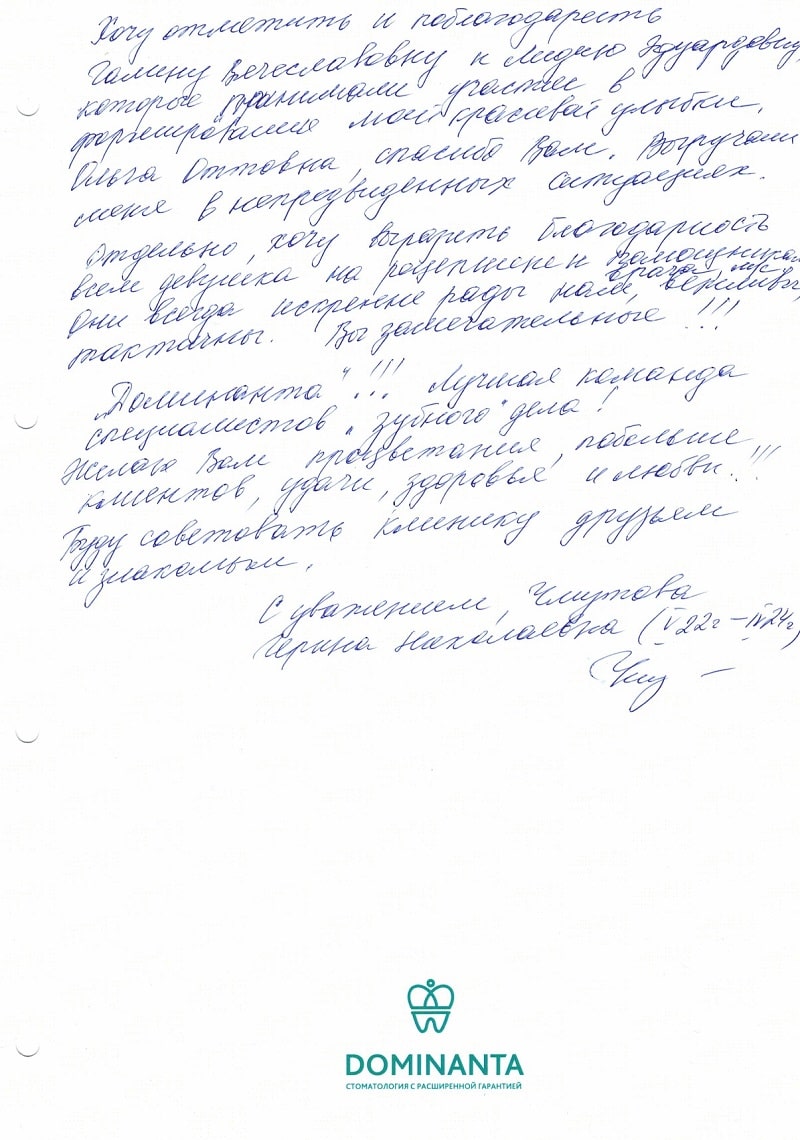 Хочу отметить и поблагодарить
Галину Вячеславовну и Лидию Эдуардовну,
которые принимали участие в
формировании моей красивой улыбки.
Ольга Оттовна, спасибо Вам. Выручали
меня в непредвиденных ситуациях.
Отдельно, хочу выразить благодарность
всем девушка на рецепшене и помощникам
врача,
Они всегда искренне рады нам, вежливы,
тактичны. Вы замечательные !!!
"Доминанта" !!! Лучшая команда
специалистов "зубного" дела!
Желаю Вам процветания, побольше
клиентов, удачи, здоровья и любви.!!!
Буду советовать клинику друзьям
и знакомым.
С уважением,
Николаевна (V 22г – IV 24г)
DOMINANTA
СТОМАТОЛОГИЯ С РАСШИРЕННОЙ ГАРАНТИЕЙ